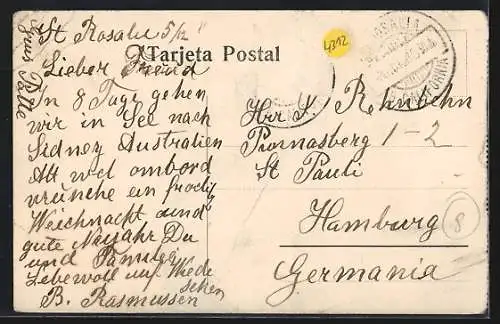 St Rosalie 5/12
Tarjeta Postal
Lieber Freund
In 8 Tage gehen
wir in See nach
Sidney Australien
Alt wel ombord
wünche en frodig
Weichnacht und
gute Neujahr Du
und Familie
Lebewoll auf Wiede
sehen
B. Rasmussen
4312
CALIFORNIA
Herr
Pinnasberg 1-2
St Pauli
Hamburg
Germania
8